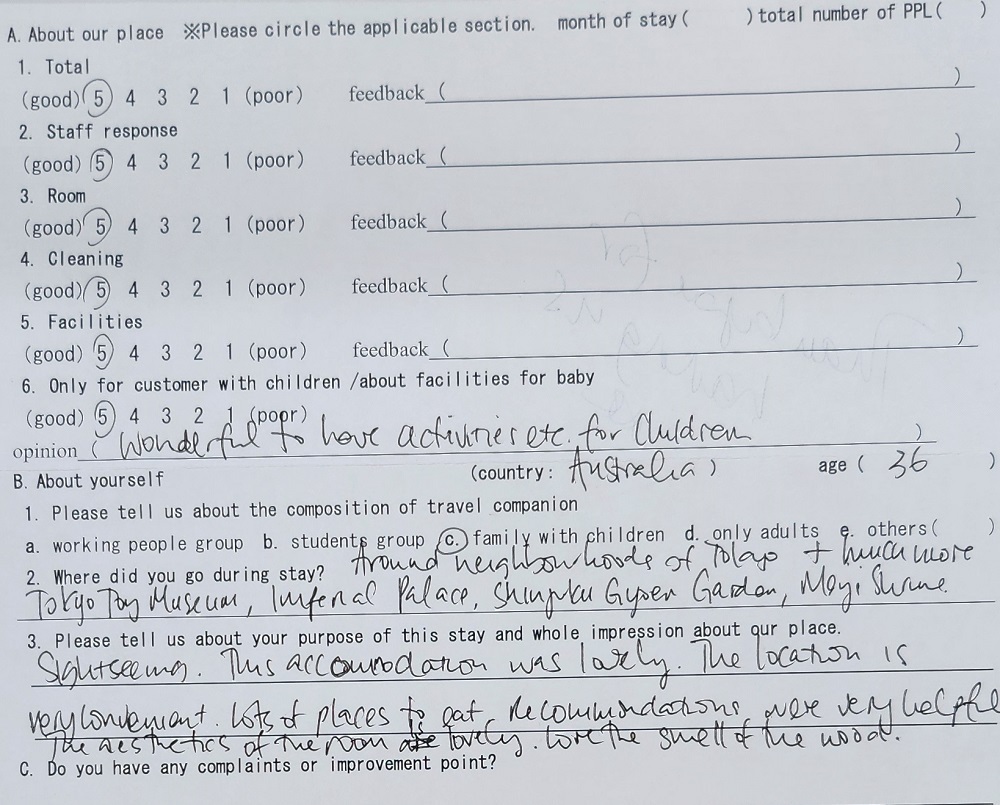 A. About our place ※Please circle the applicable section. month of stay ( ) total number of PPL( )
1. Total
(good) 5 4 3 2 1 (poor) feedback ( )
2. Staff response
(good) 5 4 3 2 1 (poor) feedback ( )
3. Room
(good) 5 4 3 2 1 (poor) feedback ( )
4. Cleaning
(good) 5 4 3 2 1 (poor) feedback ( )
5. Facilities
(good) 5 4 3 2 1 (poor) feedback ( )
6. Only for customer with children /about facilities for baby
(good) 5 4 3 2 1 (poor)
opinion ( Wonderful to have activities etc. for Children )
B. About yourself (country: Australia ) age ( 36 )
1. Please tell us about the composition of travel companion
a. working people group b. students group c. family with children d. only adults e. others( )
2. Where did you go during stay? Around neighbourhoods of Tokyo + much more
Tokyo Toy Museum, Imperial Palace, Shinjuku Gyoen Garden, Meiji Shrine.
3. Please tell us about your purpose of this stay and whole impression about our place.
Sightseeing. This accommodation was lovely. The location is
very convenient. Lots of places to eat. Recommendations were very helpful
The aesthetics of the room is lovely. Love the smell of the wood.
C. Do you have any complaints or improvement point?